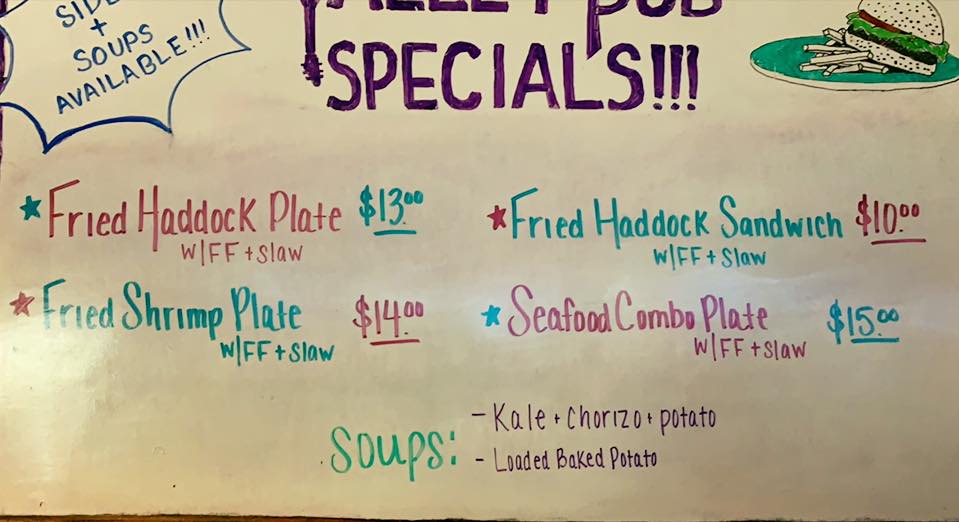 +
SOUPS
AVAILABLE!!!
PUB
SPECIALS!!!
Fried Haddock Plate $13.00
w/FF + Slaw
Fried Haddock Sandwich $10.00
w/FF + Slaw
Fried Shrimp Plate $14.00
w/FF + Slaw
Seafood Combo Plate $15.00
w/FF + Slaw
Soups:
- Kale + Chorizo + potato
- Loaded Baked Potato